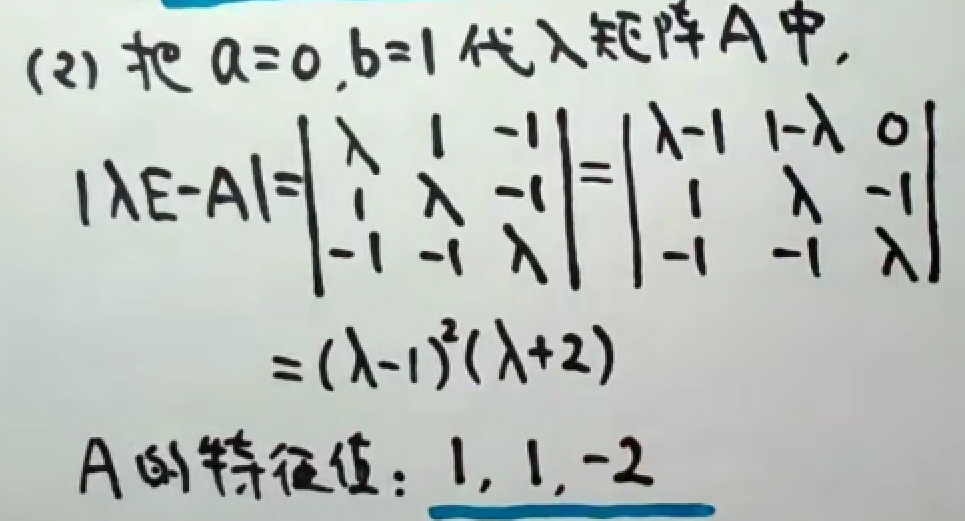 (2) 把 a=0, b=1 代入矩阵A中,
|λE-A|=|λ 1 -1; 1 λ -1; -1 -1 λ|=|λ-1 1-λ 0; 1 λ -1; -1 -1 λ|
=(λ-1)²(λ+2)
A的特征值: 1, 1, -2